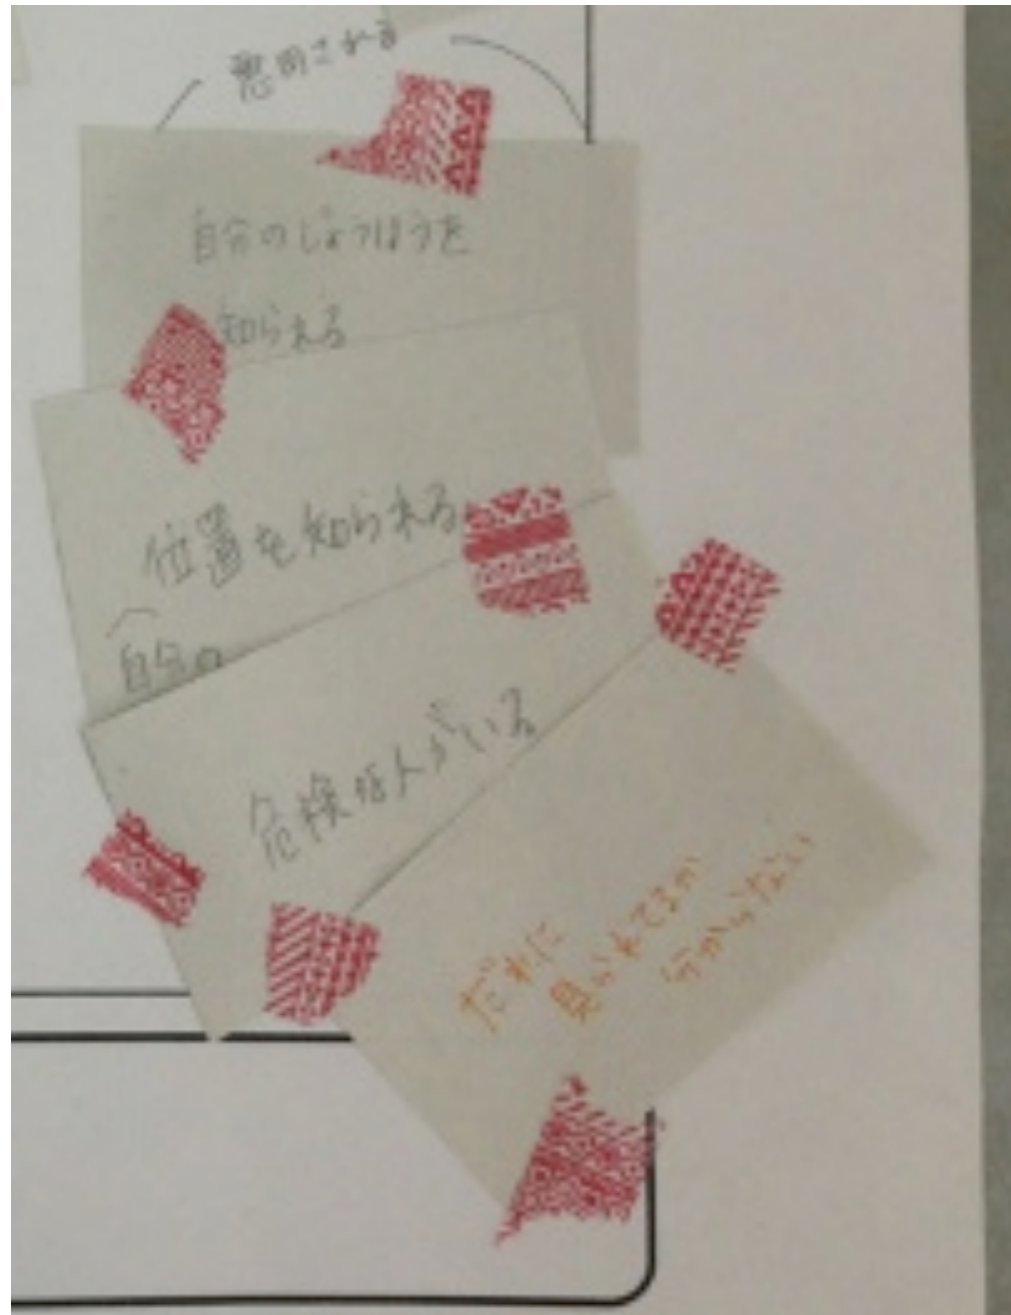 悪用される
自分のじょうほうを
知られる
位置を知られる
自分の
危険な人がいる
だれに
見られてるか
分からない